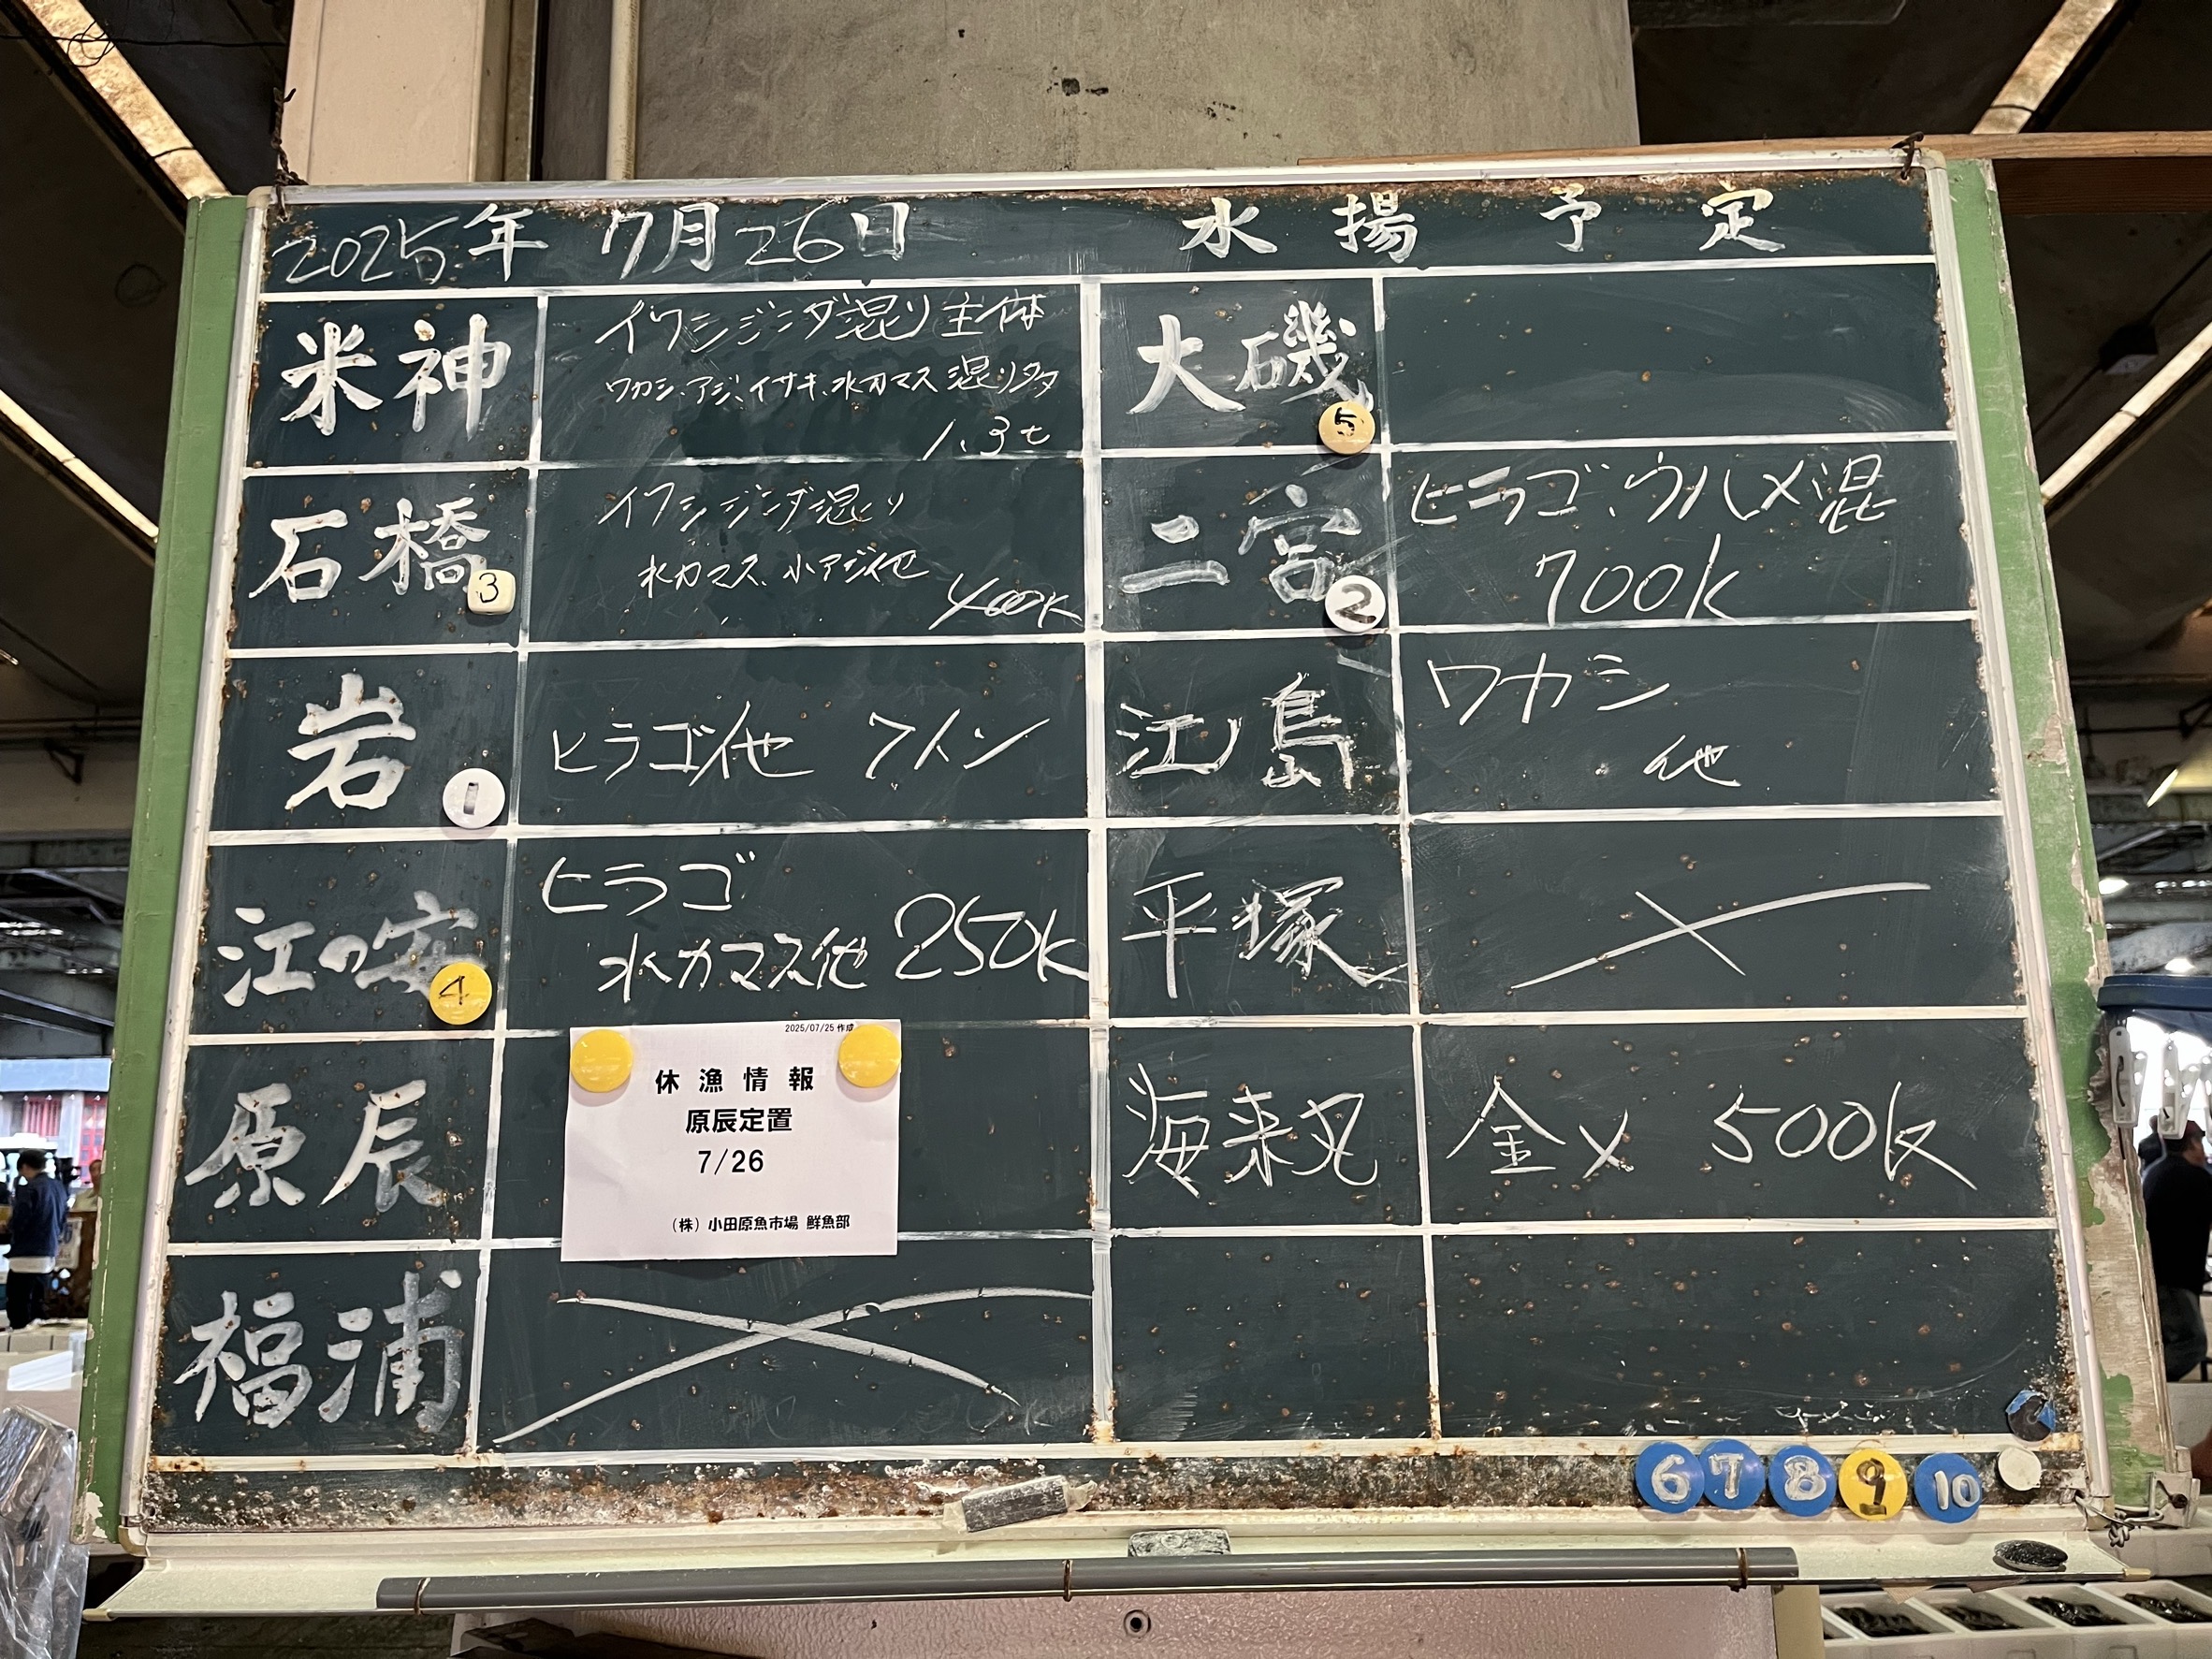 2025年 7月26日 水揚予定
米神
イワシジンダ混り主体
ワカシ、アジ、イサキ、水カマス 混り多
1.3t
石橋
3
イワシジンダ混り
水カマス、小アジ他
400k
岩
1
ヒラゴ他
江の安
4
ヒラゴ
水カマス他 250k
原辰
2025/07/25 作成
休漁情報
原辰定置
7/26
(株) 小田原魚市場 鮮魚部
福浦
大磯
5
二宮
2
ヒラゴ、ウルメ混
700k
江ノ島
ワカシ
他
平塚
海来丸
金メ 500k
6 7 8 9 10